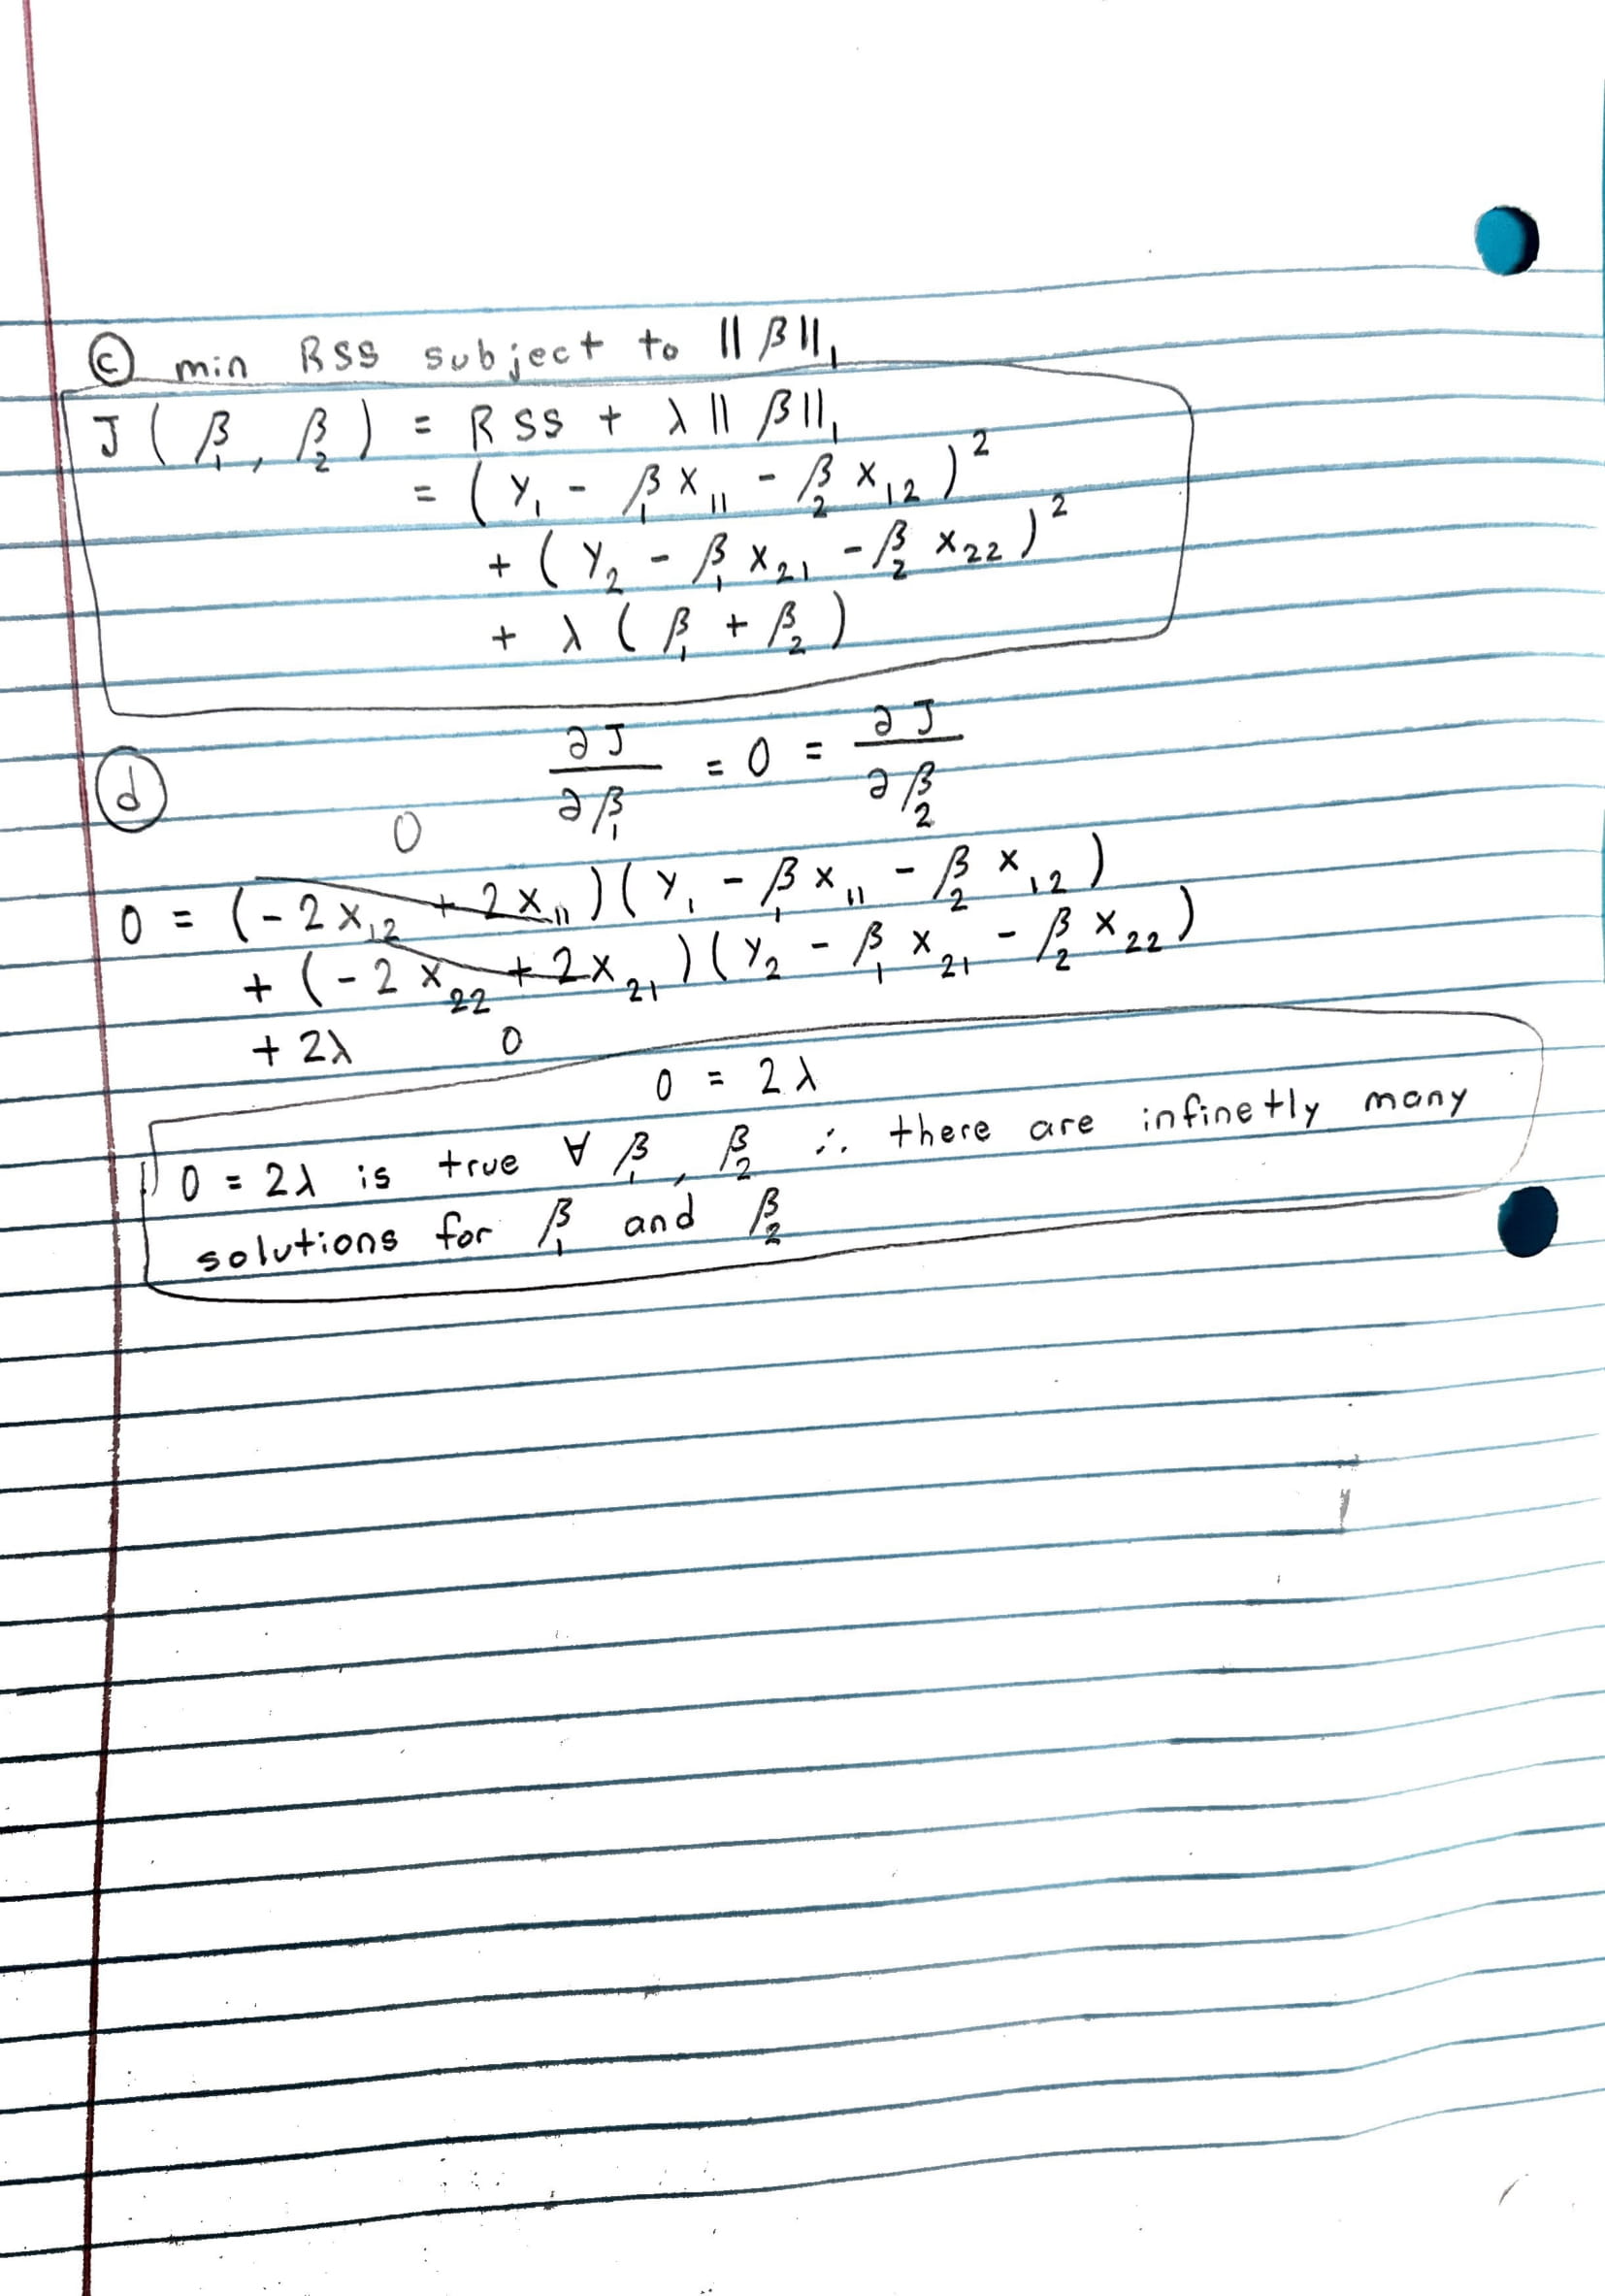 ⓒ min RSS subject to ||β||₁
J(β₁, β₂) = RSS + λ||β||₁
= (y₁ - β₁x₁₁ - β₂x₁₂)²
+ (y₂ - β₁x₂₁ - β₂x₂₂)²
+ λ(β₁ + β₂)
ⓓ ∂J/∂β₁ = 0 = ∂J/∂β₂
0
0 = (-2x₁₂ + 2x₁₁)(y₁ - β₁x₁₁ - β₂x₁₂)
+ (-2x₂₂ + 2x₂₁)(y₂ - β₁x₂₁ - β₂x₂₂)
+ 2λ 0
0 = 2λ
0 = 2λ is true ∀ β₁, β₂ ∴ there are infinetly many
solutions for β₁ and β₂